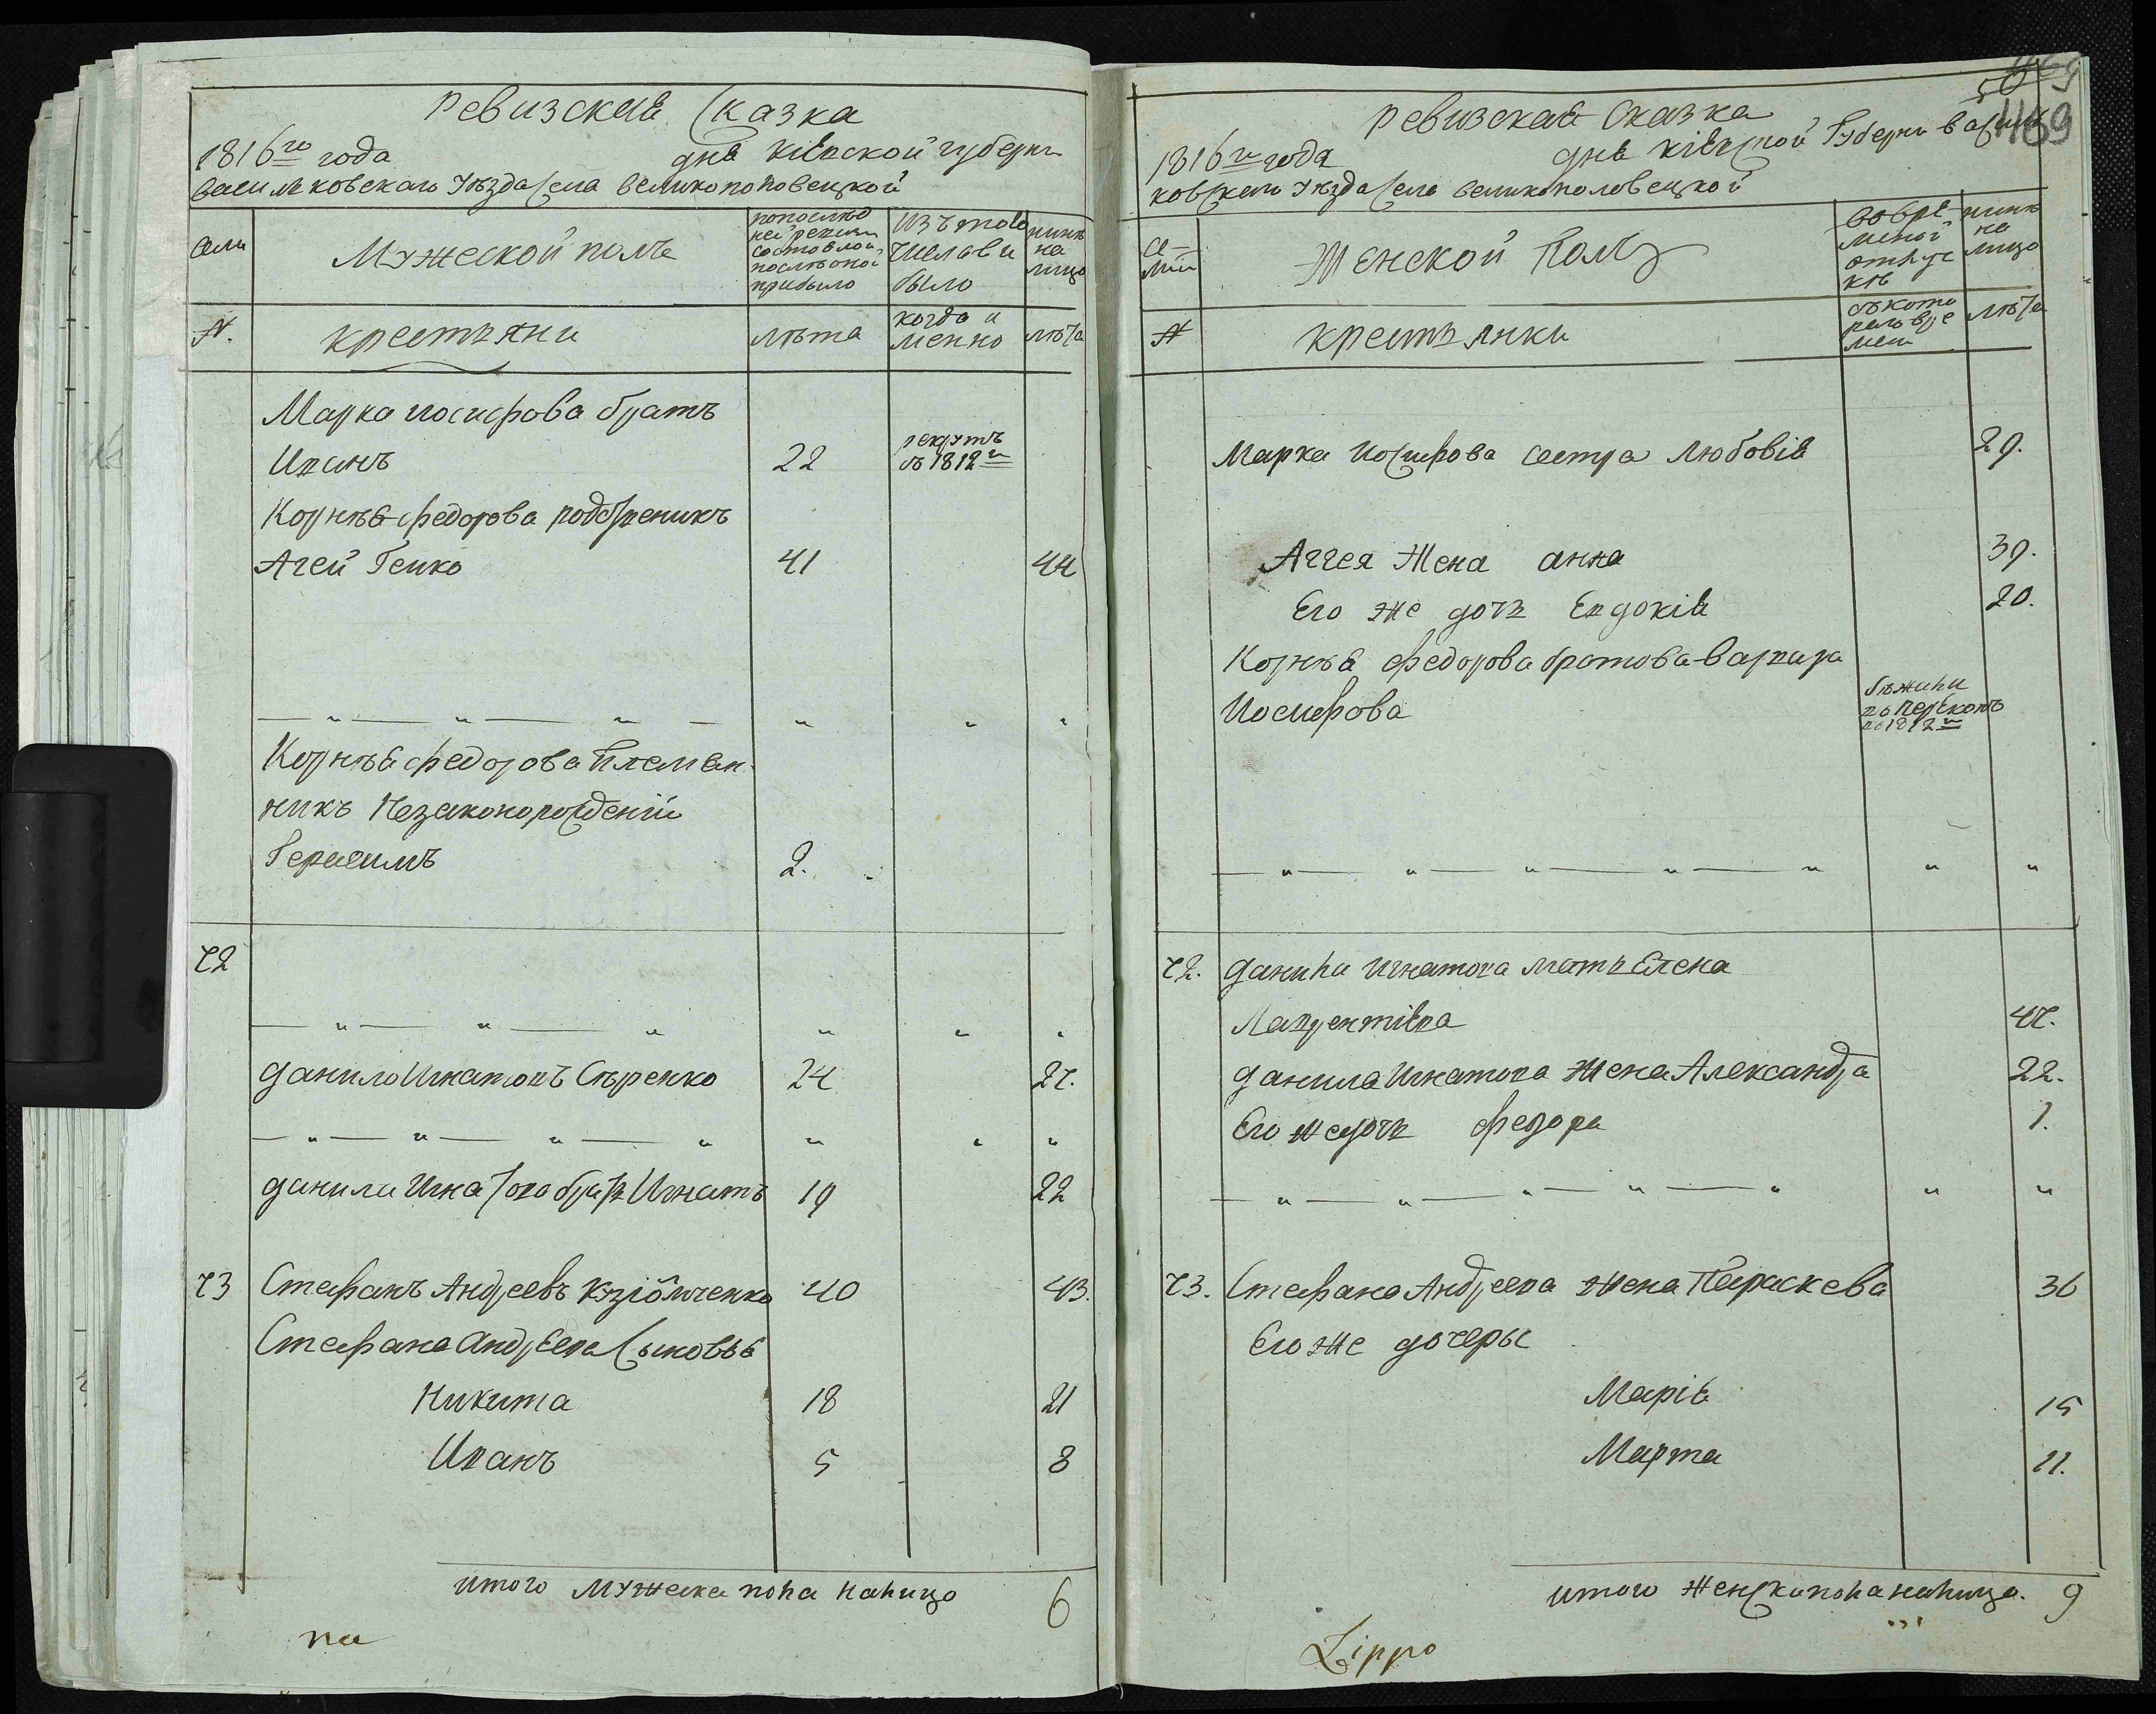 Ревизская Сказка
1816го года дня Кіевской губерни
василковскаго уезда села великополовецкой
Семи
Мужеской полъ
попослѣд
ней ревизи
состояло и
послѣ оной
прибыло
Изъ того
числа ви
было
нинѣ
на
лицо
№.
крестьяни
лѣта
когда и
менно
лѣта
Марка иосифова братъ
Иванъ 22 рекрутъ
въ 1812го
Корнѣя федорова подсусѣникъ
Агей Генко 41 44
Корнѣя федорова племян
никъ Незаконорожденій
Герасимъ 2.
72
данило Игнатовъ Сѣренко 24 27.
данила Игнатова братъ Игнатъ 19 22
73 Стефанъ Андреевъ 40 43.
Стефана Андреева Сыновья
Никита 18 21
Иванъ 5 8
итого мужеска пола налицо 6
на
50
469
469
Ревизская Сказка
1816го года дня кіевской Губерни васил
ковскаго уезда села великополовецкой
Се-
мій
Женской Полъ
вовре
меной
отлуч
кѣ
нинѣ
на
лицо
№
крестьянки
съ кото
раго вре
мени
лѣта
Марка Иосифова сестра Любовія 29.
Аггея Жена анна 39.
Его же дочь Евдокія 20.
Корнѣя федорова братова Варвара
Иосифова бѣжали
въ 1812го
72. данила Игнатова мать Елена
Лаврентіева 47.
данила Игнатова Жена Александра 22.
Его же дочь федора 1.
73. Стефана Андреева жена Параскева 36
Его же дочеры
Марія 15
Марта 11.
итого женска пола налицо. 9
Lippo